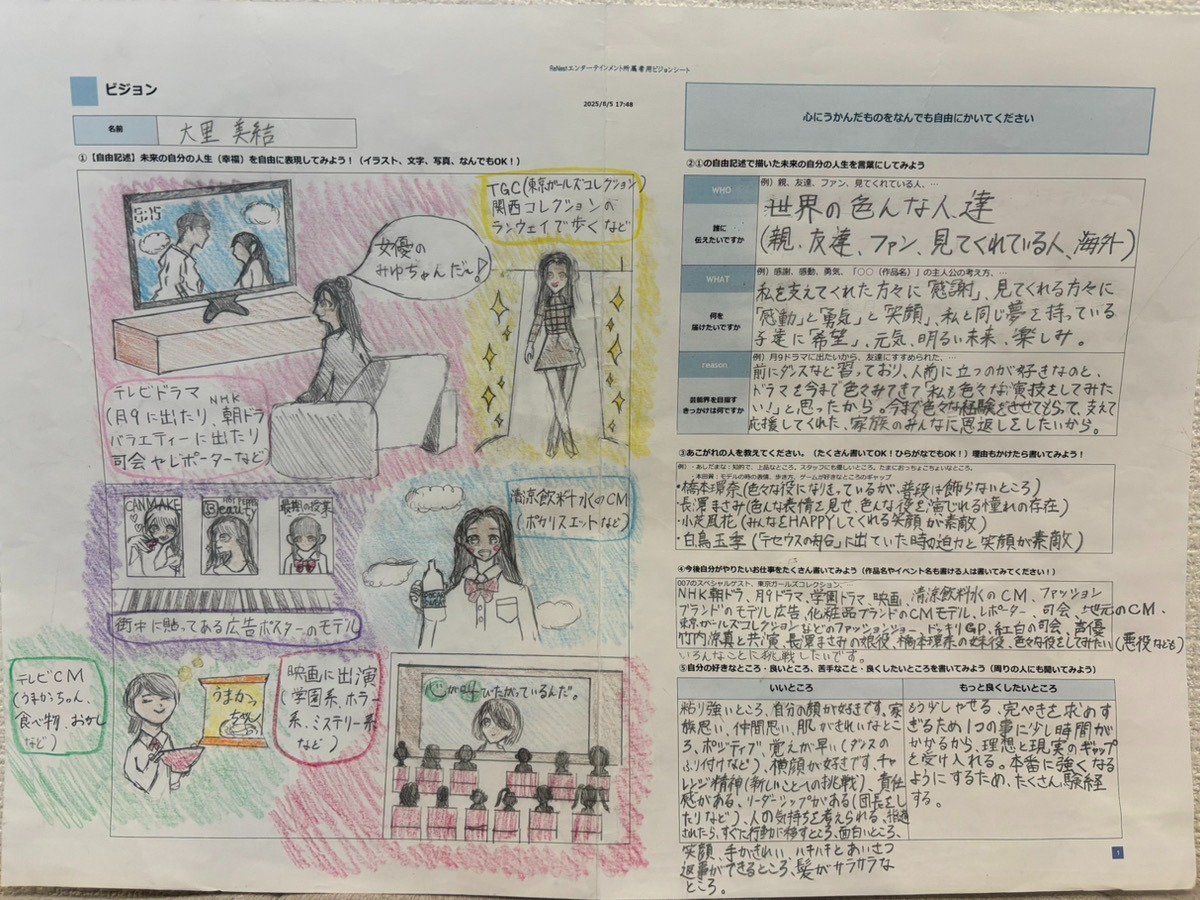 ReNestエンターテインメント所属者用ビジョンシート
ビジョン
2025/8/5 17:48
名前
大里 美結
①【自由記述】未来の自分の人生（幸福）を自由に表現してみよう！（イラスト、文字、写真、なんでもOK！）
8:15
女優の
みゆちゃんだ〜!
TGC(東京ガールズコレクション)
関西コレクションの
ランウェイで歩くなど
テレビドラマ
NHK
(月9に出たり、朝ドラ
バラエティーに出たり
司会やレポーターなど
CANMAKE
Beauty
街中に貼ってある広告ポスターのモデル
清涼飲料水のCM
(ポカリスエットなど)
テレビCM
(うまかっちゃん、
食べ物、おかし
など)
うまかっ
ちゃん
映画に出演
(学園系、ホラー
系、ミステリー系
など)
心が叫びたがっているんだ。
心にうかんだものをなんでも自由にかいてください
②①の自由記述で描いた未来の自分の人生を言葉にしてみよう
WHO
誰に
伝えたいですか
例）親、友達、ファン、見てくれている人、…
世界の色んな人達
(親、友達、ファン、見てくれている人、海外)
WHAT
何を
届けたいですか
例）感謝、感動、勇気、「〇〇（作品名）」の主人公の考え方、…
私を支えてくれた方々に「感謝」、見てくれる方々に
「感動」と「勇気」と「笑顔」、私と同じ夢を持っている
子達に「希望」、元気、明るい未来、楽しみ。
reason
芸能界を目指す
きっかけは何ですか
例）月9ドラマに出たいから、友達にすすめられた、…
前にダンスなど習っており、人前に立つのが好きなのと、
ドラマを今まで色々みてきて「私も色々な演技をしてみた
い!」と思ったから。今まで色々な経験をさせてもらって、支えて
応援してくれた、家族のみんなに恩返しをしたいから。
③あこがれの人を教えてください。（たくさん書いてOK！ひらがなでもOK！）理由もかけたら書いてみよう！
例）・あしだまな：知的で、上品なところ。スタッフにも優しいところ。たまにおっちょこちょいなところ。
・本田翼：モデルの時の表情、歩き方、ゲームが好きなところのギャップ
・橋本環奈(色々な役になりきっているが、普段は飾らないところ)
・長澤まさみ(色んな表情を見せ、色んな役を演じれる憧れの存在)
・小芝風花(みんなをHAPPYしてくれる笑顔が素敵)
・白鳥玉季(「テセウスの船」に出ていた時の迫力と笑顔が素敵)
④今後自分がやりたいお仕事をたくさん書いてみよう（作品名やイベント名も書ける人は書いてみてください！）
007のスペシャルゲスト、東京ガールズコレクション、…
NHK朝ドラ、月9ドラマ、学園ドラマ、映画、清涼飲料水のCM、ファッション
ブランドのモデル広告、化粧品ブランドのCMモデル、レポーター、司会、地元のCM、
東京ガールズコレクションなどのファッションショー、ドッキリGP、紅白の司会、声優
竹内涼真と共演、長澤まさみの娘役、橋本環奈の妹役、色々な役をしてみたい(悪役なども)
いろんなことに挑戦したいです。
⑤自分の好きなところ・良いところ、苦手なこと・良くしたいところを書いてみよう（周りの人にも聞いてみよう）
いいところ
粘り強いところ、自分の顔が好きです、家
族思い、仲間思い、肌がきれいなとこ
ろ、ポジティブ、覚えが早い(ダンスの
ふり付けなど)、横顔が好きです、チャ
レンジ精神(新しいことへの挑戦)、責任
感がある、リーダーシップがある(団長をし
たりなど)、人の気持ちを考えられる、指摘
されたら、すぐに行動に移すところ、面白いところ、
笑顔、手がきれい、ハキハキとあいさつ
返事ができるところ、髪がサラサラな
ところ。
もっと良くしたいところ
もう少しやせる、完ぺきを求めす
ぎるため1つの事に少し時間が
かかるから、理想と現実のギャップ
と受け入れる。本番に強くなる
ようにするため、たくさん験経
する。
1